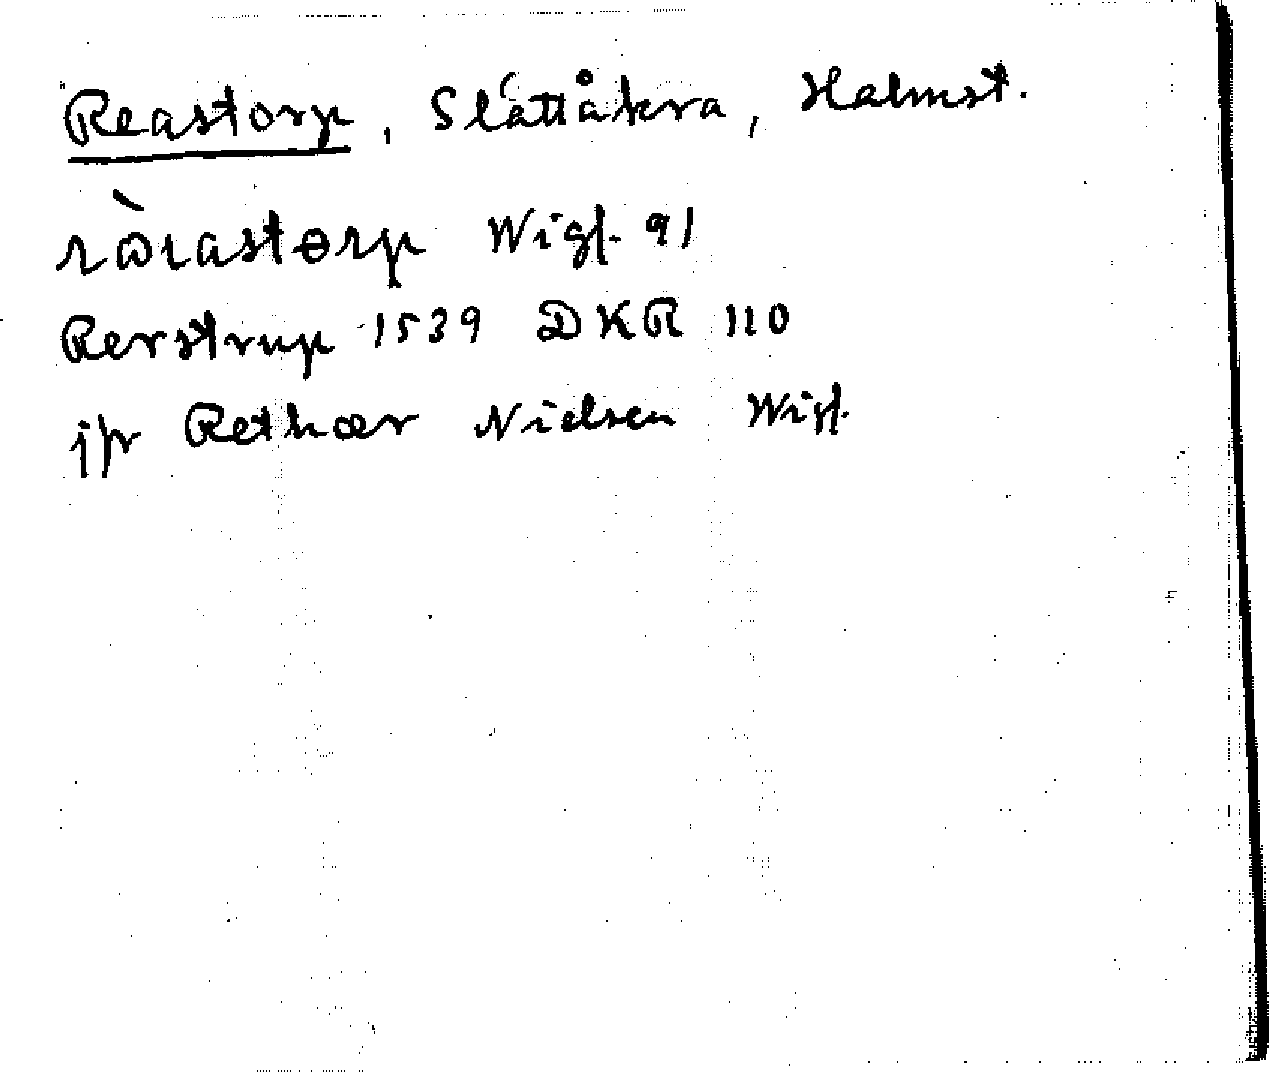 Reastorp, Slättåkra, Halmst.
ròıastɵrp Wigf. 91
Rerstrup 1539 DKR 110
jfr Rethær Nielsen Wigf.